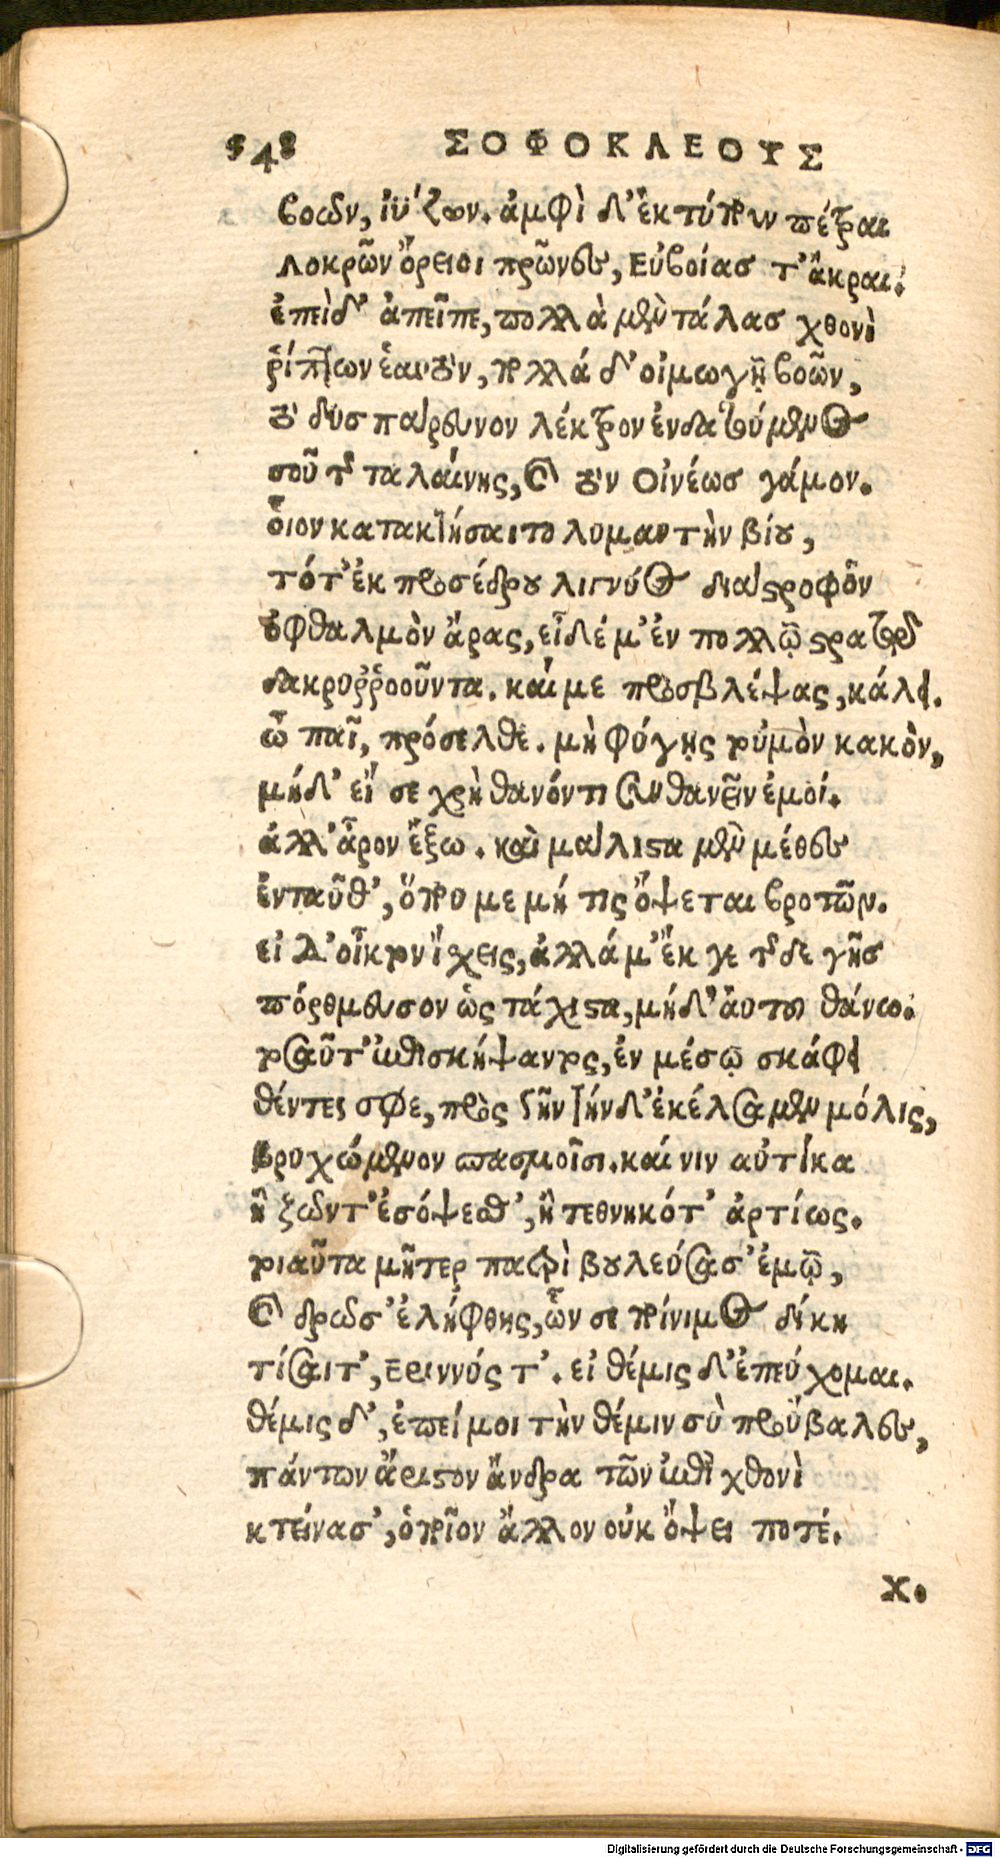 548 ΣΟΦΟΚΛΕΟΥΣ
βοῶν, ἰΰζων. ἀμφὶ δ' ἐκτύπουν πέτραι
Λοκρῶν ὄρειοι πρῶνες, Εὐβοίας τ' ἄκραι.
ἐπεὶ δ' ἀπεῖπε, πολλὰ μὲν τάλας χθονὶ
ῥίπτων ἑαυτὸν, πολλά δ' οἰμωγῇ βοῶν,
τὸ δυσπάρευνον λέκτρον ἐνδατούμενος
σοῦ τῆς ταλαίνης, καὶ τὸν Οἰνέως γάμον.
οἷον κατακτήσαιτο λυμαντὴν βίου,
τότ' ἐκ προσέδρου λιγνύος διάστροφον
ὀφθαλμὸν ἄρας, εἶδέ μ' ἐν πολλῷ στρατῷ
δακρυῤῥοοῦντα. καί με προσβλέψας, κάλει.
ὦ παῖ, πρόσελθε. μὴ φύγῃς τοὐμὸν κακὸν,
μήδ' εἴ σε χρὴ θανόντι συνθανεῖν ἐμοί.
ἀλλ' ἆρον ἔξω. καὶ μάλιστα μὲν μέθες
ἐνταῦθ', ὅπου με μή τις ὄψεται βροτῶν.
εἰ δ' οἶκτον ἴχεις, ἀλλά μ' ἔκ γε τῆσδε γῆς
πόρθμευσον ὡς τάχιστα, μήδ' αὐτοῦ θάνω.
τοσαῦτ' ἐπισκήψαντος, ἐν μέσῳ σκάφει
θέντες σφε, πρὸς γῆν τήνδ' ἐκέλσαμεν μόλις,
βρυχώμενον σπασμοῖσι. καί νιν αὐτίκα
ἢ ζῶντ' ἐσόψεσθ', ἢ τεθνηκότ' ἀρτίως.
τοιαῦτα μῆτερ πατρὶ βουλεύσασ' ἐμῷ,
καὶ δρῶσ' ἐλήφθης, ὧν σε ποίνιμος δίκη
τίσαιτ', Ἐριννύς τ'. εἰ θέμις δ' ἐπεύχομαι.
θέμις δ', ἐπεί μοι τὴν θέμιν σὺ προὔβαλες,
πάντων ἄριστον ἄνδρα τῶν ἐπὶ χθονὶ
κτείνασ', ὁποῖον ἄλλον οὐκ ὄψει ποτέ.
χ.
Digitalisierung gefördert durch die Deutsche Forschungsgemeinschaft - DFG